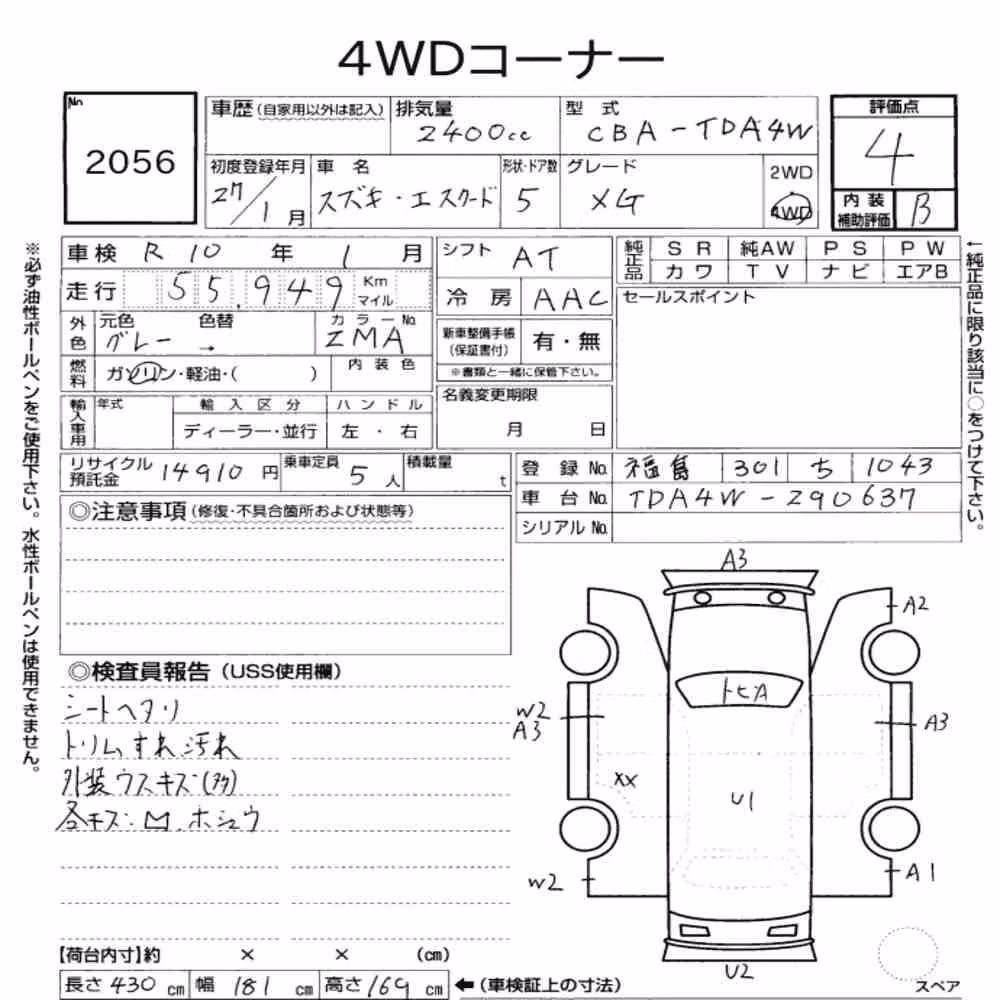 4WDコーナー
No. 2056
車歴(自家用以外は記入) 排気量 2400cc 型式 CBA-TDA4W
評価点 4
初度登録年月 27/1月 車名 スズキ・エスクード 形状・ドア数 5 グレード XG 2WD 4WD
内装補助評価 B
車検 R10年1月 シフト AT
走行 55,949 Km マイル 冷房 AAC
純正品 SR 純AW PS PW
カワ TV ナビ エアB
セールスポイント
外色 元色 グレー 色替 → カラーNo. ZMA
新車整備手帳(保証書付) 有・無
※書類と一緒に保管下さい。
燃料 ガソリン・軽油・( ) 内装色
輸入車用 年式 輸入区分 ハンドル
ディーラー・並行 左・右
名義変更期限
月 日
リサイクル預託金 14910円 乗車定員 5人 積載量 t
登録No. 福島 301 ち 1043
車台No. TDA4W-290637
シリアルNo.
◎注意事項(修復・不具合箇所および状態等)
◎検査員報告(USS使用欄)
シートヘタリ
トリムすれ汚れ
外装ウスキズ(多)
各キズ・凹、ホシュウ
A3
A2
トヒA
W2
A3
A3
XX
U1
W2
A1
U2
スペア
【荷台内寸】約 × × (cm)
長さ430cm 幅181cm 高さ169cm ←(車検証上の寸法)
※必ず油性ボールペンをご使用下さい。水性ボールペンは使用できません。
←純正品に限り該当に○をつけて下さい。